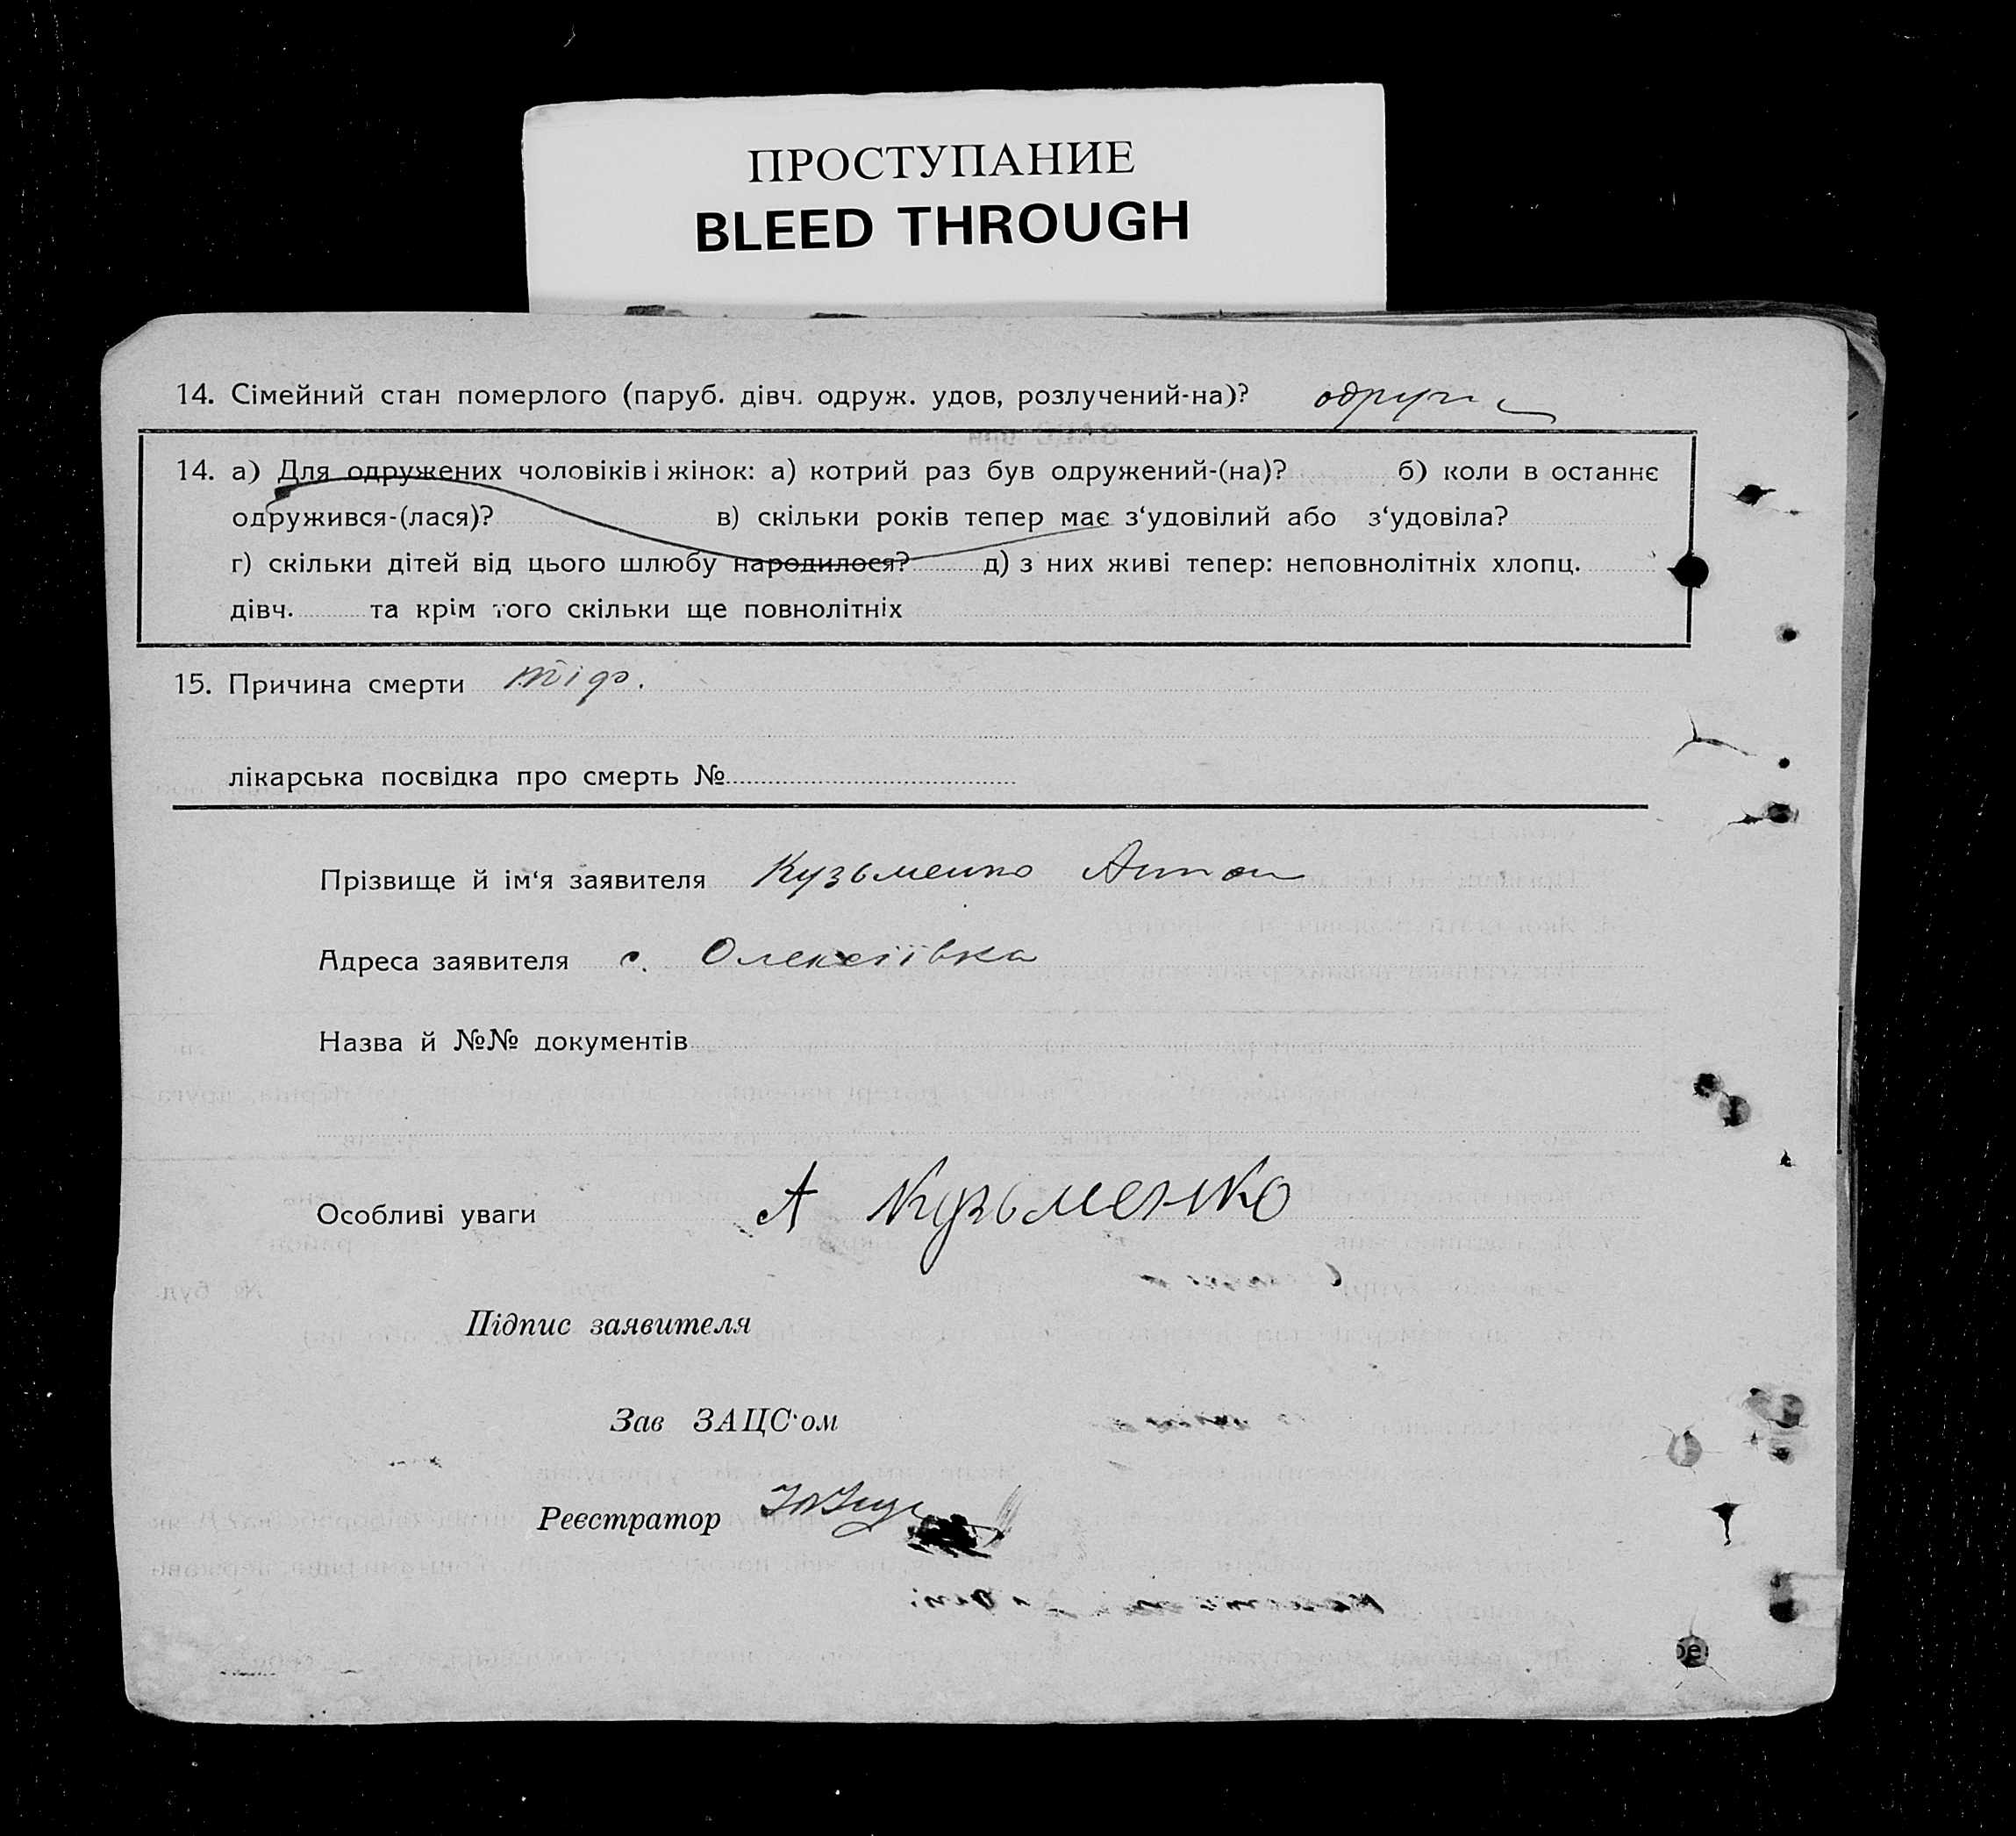 ПРОСТУПАНИЕ
BLEED THROUGH
14. Сімейний стан померлого (паруб. дівч. одруж. удов, розлучений-на)? одруж
14. а) Для одружених чоловіків і жінок: а) котрий раз був одружений-(на)? б) коли в останнє
одружився-(лася)? в) скільки років тепер має з‘удовілий або з‘удовіла?
г) скільки дітей від цього шлюбу народилося? д) з них живі тепер: неповнолітніх хлопц.
дівч. та крім того скільки ще повнолітніх
15. Причина смерти тіф.
лікарська посвідка про смерть №
Прізвище й ім‘я заявителя Кузьменко Антон
Адреса заявителя с. Олексіївка
Назва й №№ документів
Особливі уваги А Кузьменко
Підпис заявителя
Зав ЗАЦС‘ом
Реєстратор